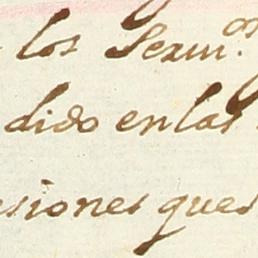 los Sexm.os
dido en las
siones ques